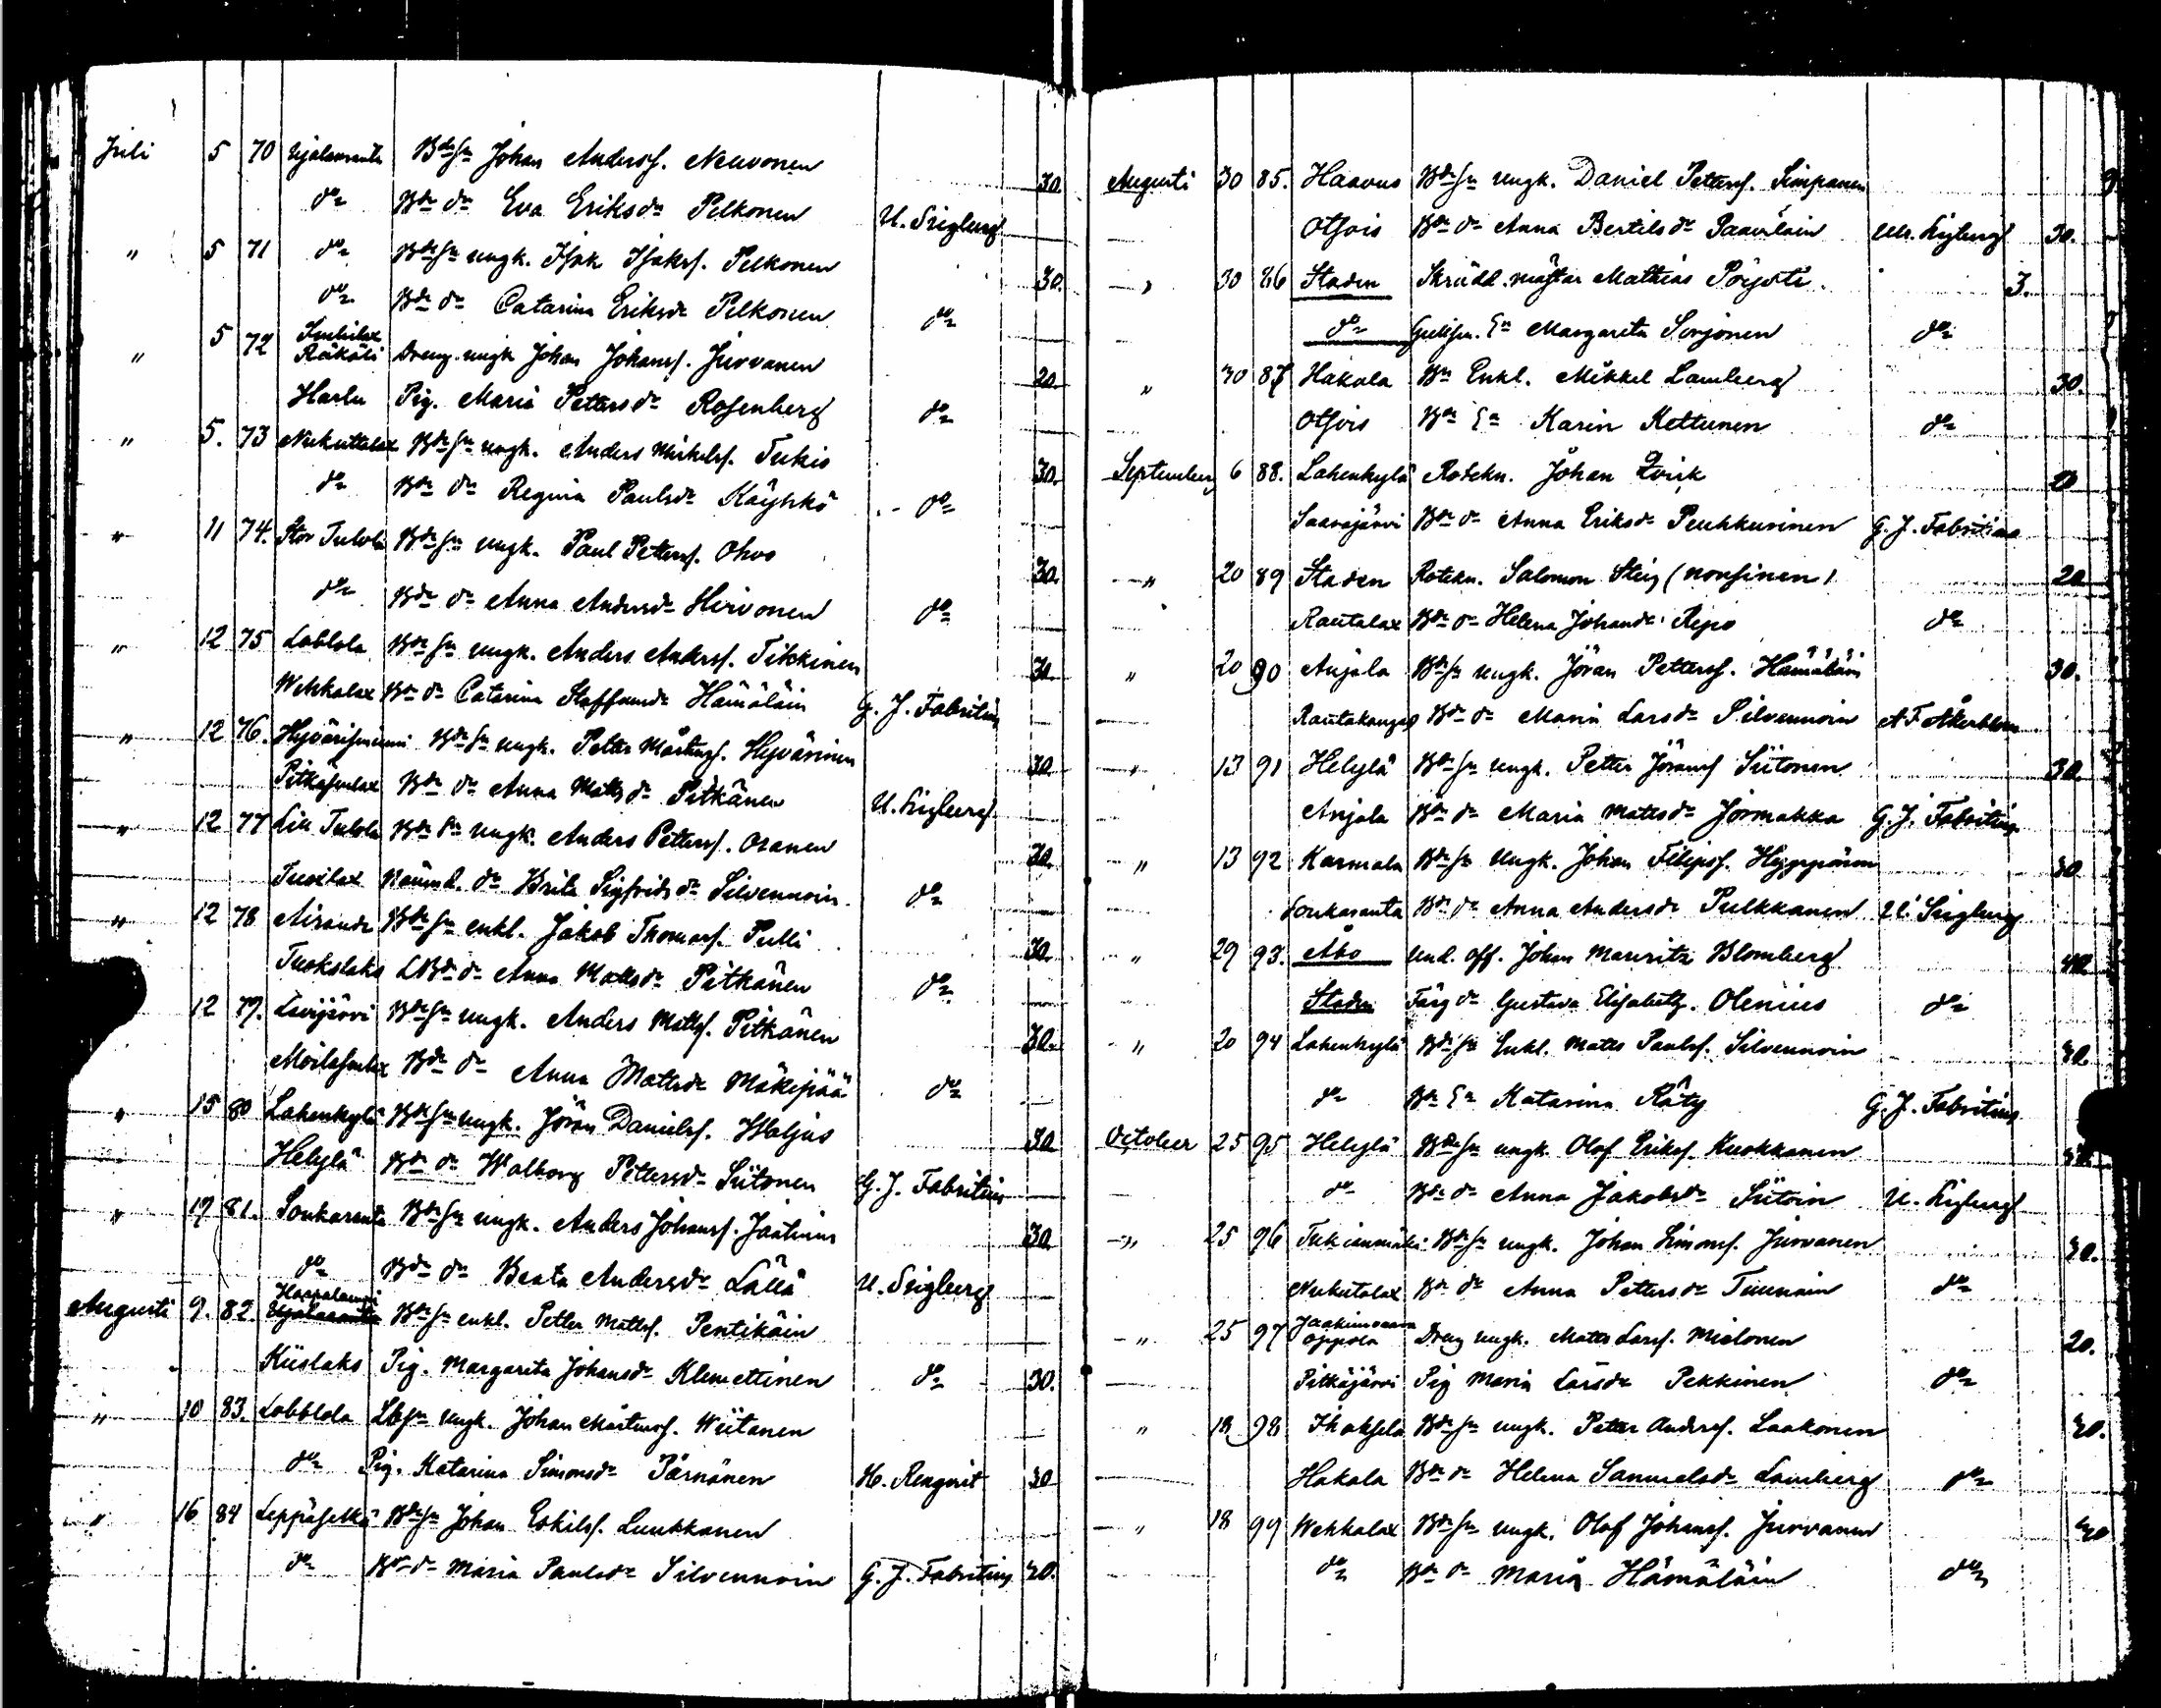 Juli 5 70 Ujalanranta Bdesn Johan Anderss. Neuvonen 30.
do Bde dr Eva Eriksdr Pelkonen U. Sirgberg
" 5 71 do Bdesn ungk. Isak Isaks. Pelkonen 30.
do Bde dr Catarina Eriksdr Pelkonen do
" 5 72 Räkäli Dreng. ungk Johan Johanss. Jurvanen 20
Harlu Pig. Maria Pettersdr Rosenberg do
" 5. 73 Nukuttalax Bdesn ungk. Anders Mickels. Tukia 30
do Bde dr Regina Paulsdr Käyhkö do
" 11 74. Stor Tulola Bdesn ungk. Paul Petterss. Ohvo 30.
do Bde dr Anna Andersdr Hirvonen do
" 12 75 Labbola Bdesn ungk. Anders Anderss. Tikkinen 30
Wehkalax Bde dr Catarina Staffansdr Hämäläin G. J. Fabritius
" 12 76. Hyvärisniemi Bdesn ungk. Petter Mårtenss. Hyvärinen 30
Pitkäsenlax Bde dr Anna Mattsdr Pitkänen U. Sirgberg
" 12 77 Lill Tulola Bdesn ungk. Anders Petterss. Oranen 30.
Tuoslax Nämnd. dr Brita Sigfridsdr Silvennoin do
" 12 78 Airanda Bdesn enkl. Jakob Thomass. Pulli 30.
Tuokslaks LBde dr Anna Mattsdr Pitkänen do
12 79. Lavijärvi Bdesn ungk. Anders Matts. Pitkänen 30.
Bde dr Anna Mattsdr Mäkipää do
" 15 80 Lahenkylä Bdesn ungk. Jöran Daniels. Waljus 30
Helylä Bde dr Walborg Pettersdr Siitonen G. J. Fabritius
" 19 81. Soukaranta Bdesn ungk. Anders Johanss. Jaatinen 30
do Bde dr Beata Andersdr Lällä U. Sirgberg
Augusti 9. 82. Happalanni Bdesn enkl. Petter Matts. Pentikäin
Kiislaks Pig. Margareta Johansdr Klemettinen do 30.
" 10 83. Labbola Lbsn ungk. Johan Mårtenss. Wiitanen
do Pig. Katarina Simonsdr Pärnänen H. Renqvist 30
" 16 84 Leppäselkä Bdesn Johan Eskils. Luukkanen
do Bde dr Maria Paulsdr Silvennoin G. J. Fabritius 30.
9.
Augusti 30 85. Haavus Bdesn ungk. Daniel Petterss. Simpanen
Otsois Bde dr Anna Bertilsdr Paavilain Ulr. Sirgberg 30.
" 30 86 Staden Skrädd. mästar Mathias Pöysti 3.
do Margareta Sorjonen do
" 30 87 Hakala Bn Enkl. Mikkel Lamberg 30.
Otsois Bde Ea Karin Kettunen do
September 6 88. Lahenkylä Rotekn. Johan Qvick 20
Saarajärvi Bde dr Anna Eriksdr Peuhkurinen G. J. Fabritius
" 20 89 Staden Rotekn. Salomon Steig (Nousinen) 20
Rautalax Bde dr Helena Johansdr Repo do
" 20 90 Anjala Bdesn ungk. Jöran Petterss. Hämäläin 30.
Rautakangas Bde dr Maria Larsdr Silvennoin A F Åkerblom
" 13 91 Helylä Bdesn ungk. Petter Jörans Siitonen 30
Anjala Bde dr Maria Mattsdr Jormakka G. J. Fabritius
" 13 92 Karmala Bdesn ungk. Johan Filips. 30
Soukaranta Bde dr Anna Andersdr Pulkkanen U. Sirgberg
" 29 93. Åbo Und. off. Johan Mauritz Blomberg
Staden Färg dr Gustava Elisabeth. Olenius do
" 20 94 Lahenkylä Bdesn Enkl. Matts Pauls. Silvennoin 30.
do Bde Ea Katarina Räty G. J. Fabritius
October 25 95 Helylä Bdesn ungk. Olof Eriks. Kuokkanen
do Bde dr Anna Jakobsdr Siitoin U. Sirgberg
" 25 96 Tukianmäki Bdesn ungk. Johan Simons. Jurvanen 30.
Nukutalax Bde dr Anna Pettersdr Tiunain do
" 25 97 Jaakimvaara Oppola Dreng ungk. Matts Larss. Mielonen 20.
Pitkäjärvi Pig Maria Larsdr Pekkinen do
" 18 98 Ihaksela Bdesn ungk. Petter Anderss. Laakonen 30.
Hakala Bde dr Helena Samuelsdr Lamberg do
" 18 99 Wehkalax Bdesn ungk. Olof Johanss. Jurvanen 30
do Bde dr Maria Hämäläin do